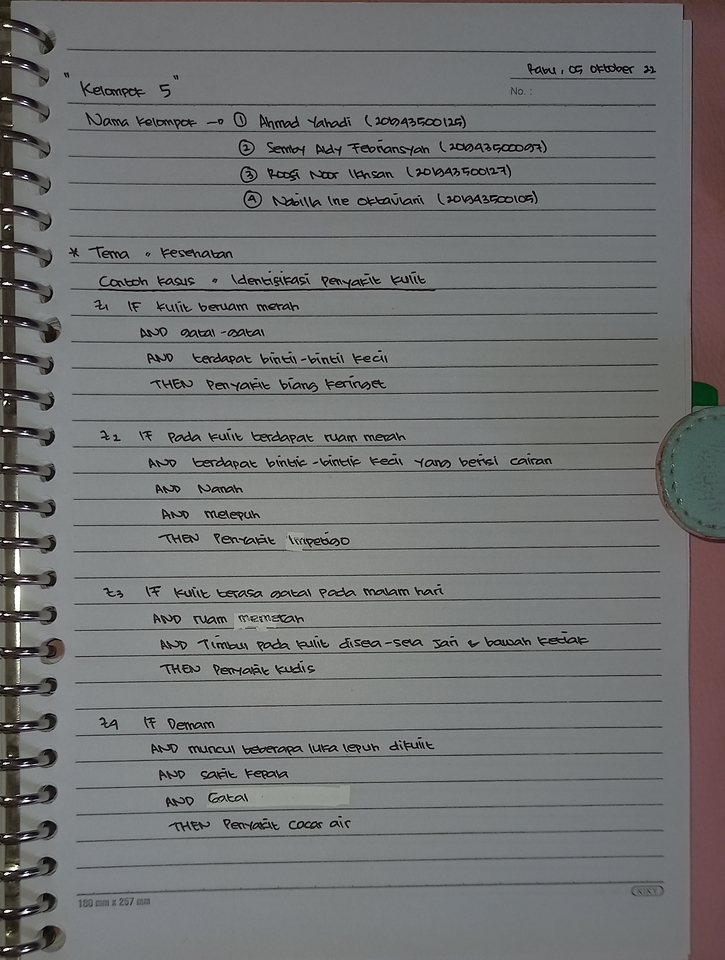 Rabu, 05 Oktober 22
"Kelompok 5"
No. :
Nama Kelompok → ① Ahmad Yahadi (201943500125)
② Semby Aldy Febriansyah (201943500097)
③ Roogi Noor Ikhsan (201943500127)
④ Nabilla Ine Oktaviani (201943500105)
* Tema : Kesehatan
Contoh kasus : Identifikasi Penyakit kulit
Z1 IF kulit beruam merah
AND gatal-gatal
AND terdapat bintil-bintil kecil
THEN Penyakit biang keringet
Z2 IF Pada kulit terdapat ruam merah
AND terdapat bintik-bintik kecil yang berisi cairan
AND Nanah
AND melepuh
THEN Penyakit Impetigo
Z3 IF kulit terasa gatal pada malam hari
AND ruam memerah
AND Timbul pada kulit disela-sela jari & bawah ketiak
THEN Penyakit kudis
Z4 IF Demam
AND muncul beberapa luka lepuh dikulit
AND sakit kepala
AND Gatal
THEN Penyakit cacar air
180 mm x 257 mm
KIKY